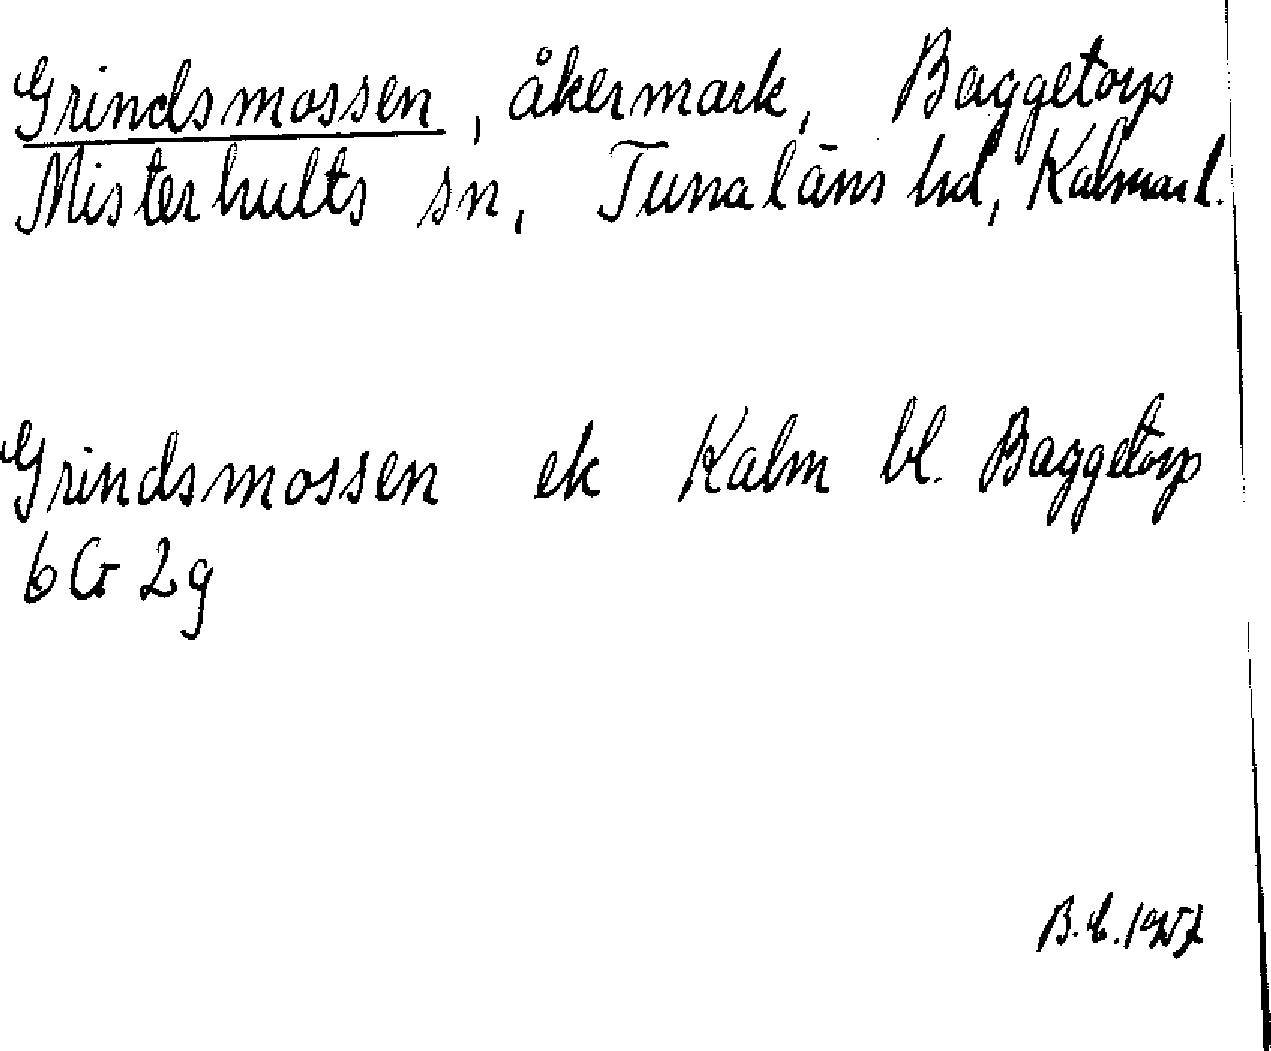 Grindsmossen, åkermark, Baggetorp
Misterhults sn, Tunaläns hd, Kalmar l.
Grindsmossen ek Kalm bl. Baggetorp
6 G 2g
B.E. 1957